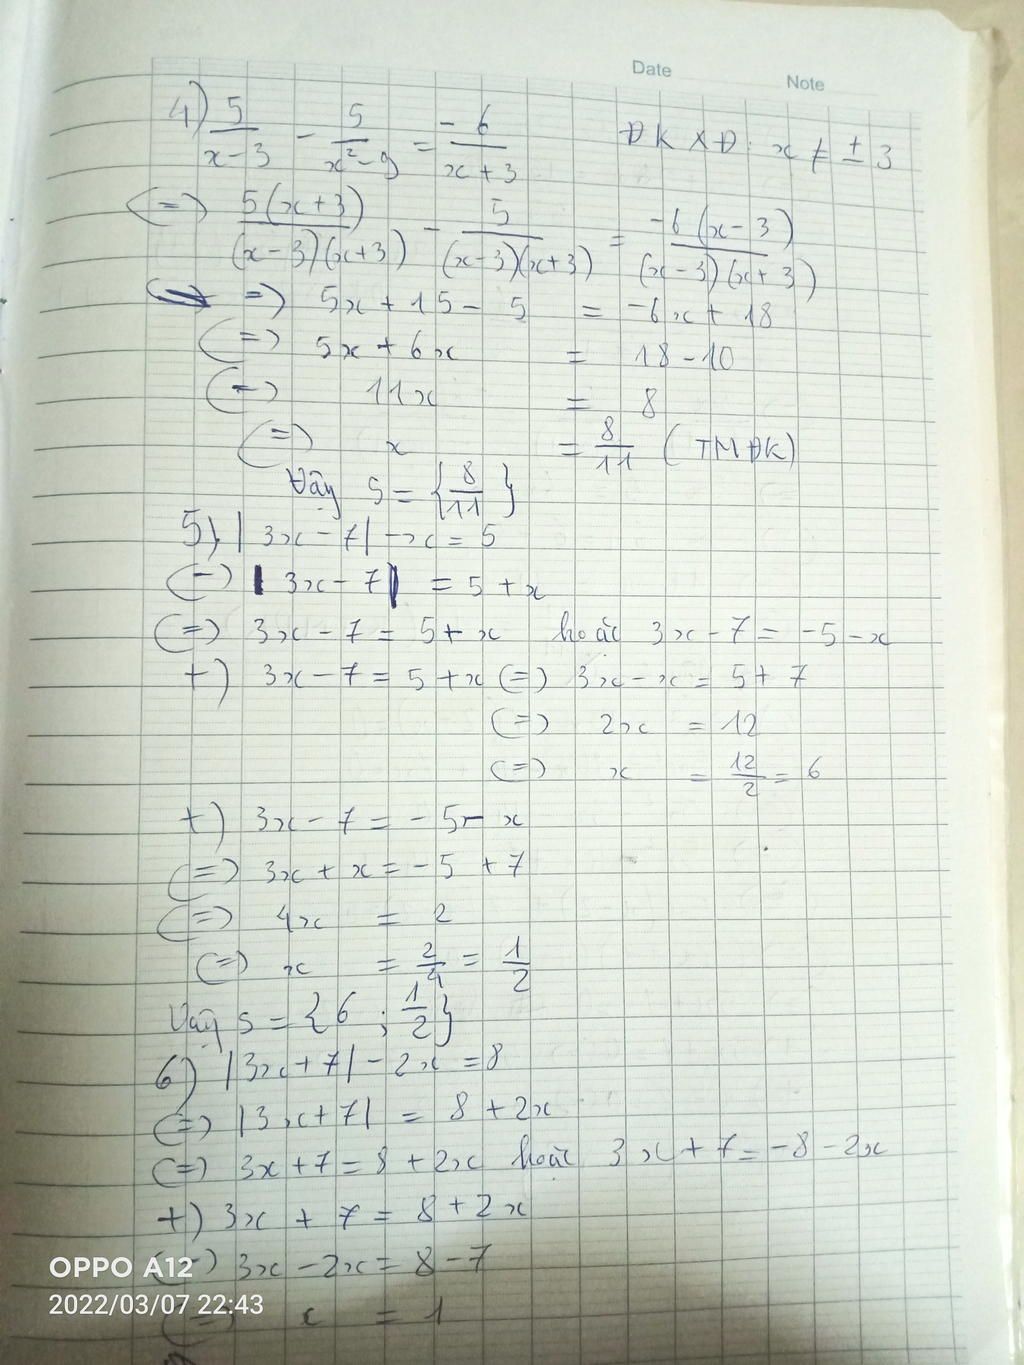 Date Note
4) 5/(x-3) - 5/(x²-9) = -6/(x+3) ĐKXĐ: x ≠ ± 3
<=> 5(x+3)/(x-3)(x+3) - 5/(x-3)(x+3) = -6(x-3)/(x-3)(x+3)
=> 5x + 15 - 5 = -6x + 18
<=> 5x + 6x = 18 - 10
<=> 11x = 8
<=> x = 8/11 (TMĐK)
Vậy S = {8/11}
5) |3x - 7| - x = 5
<=> |3x - 7| = 5 + x
<=> 3x - 7 = 5 + x hoặc 3x - 7 = -5 - x
+) 3x - 7 = 5 + x <=> 3x - x = 5 + 7
<=> 2x = 12
<=> x = 12/2 = 6
+) 3x - 7 = -5 - x
<=> 3x + x = -5 + 7
<=> 4x = 2
<=> x = 2/4 = 1/2
Vậy S = {6 ; 1/2}
6) |3x + 7| - 2x = 8
<=> |3x + 7| = 8 + 2x
<=> 3x + 7 = 8 + 2x hoặc 3x + 7 = -8 - 2x
+) 3x + 7 = 8 + 2x
<=> 3x - 2x = 8 - 7
<=> x = 1
OPPO A12
2022/03/07 22:43